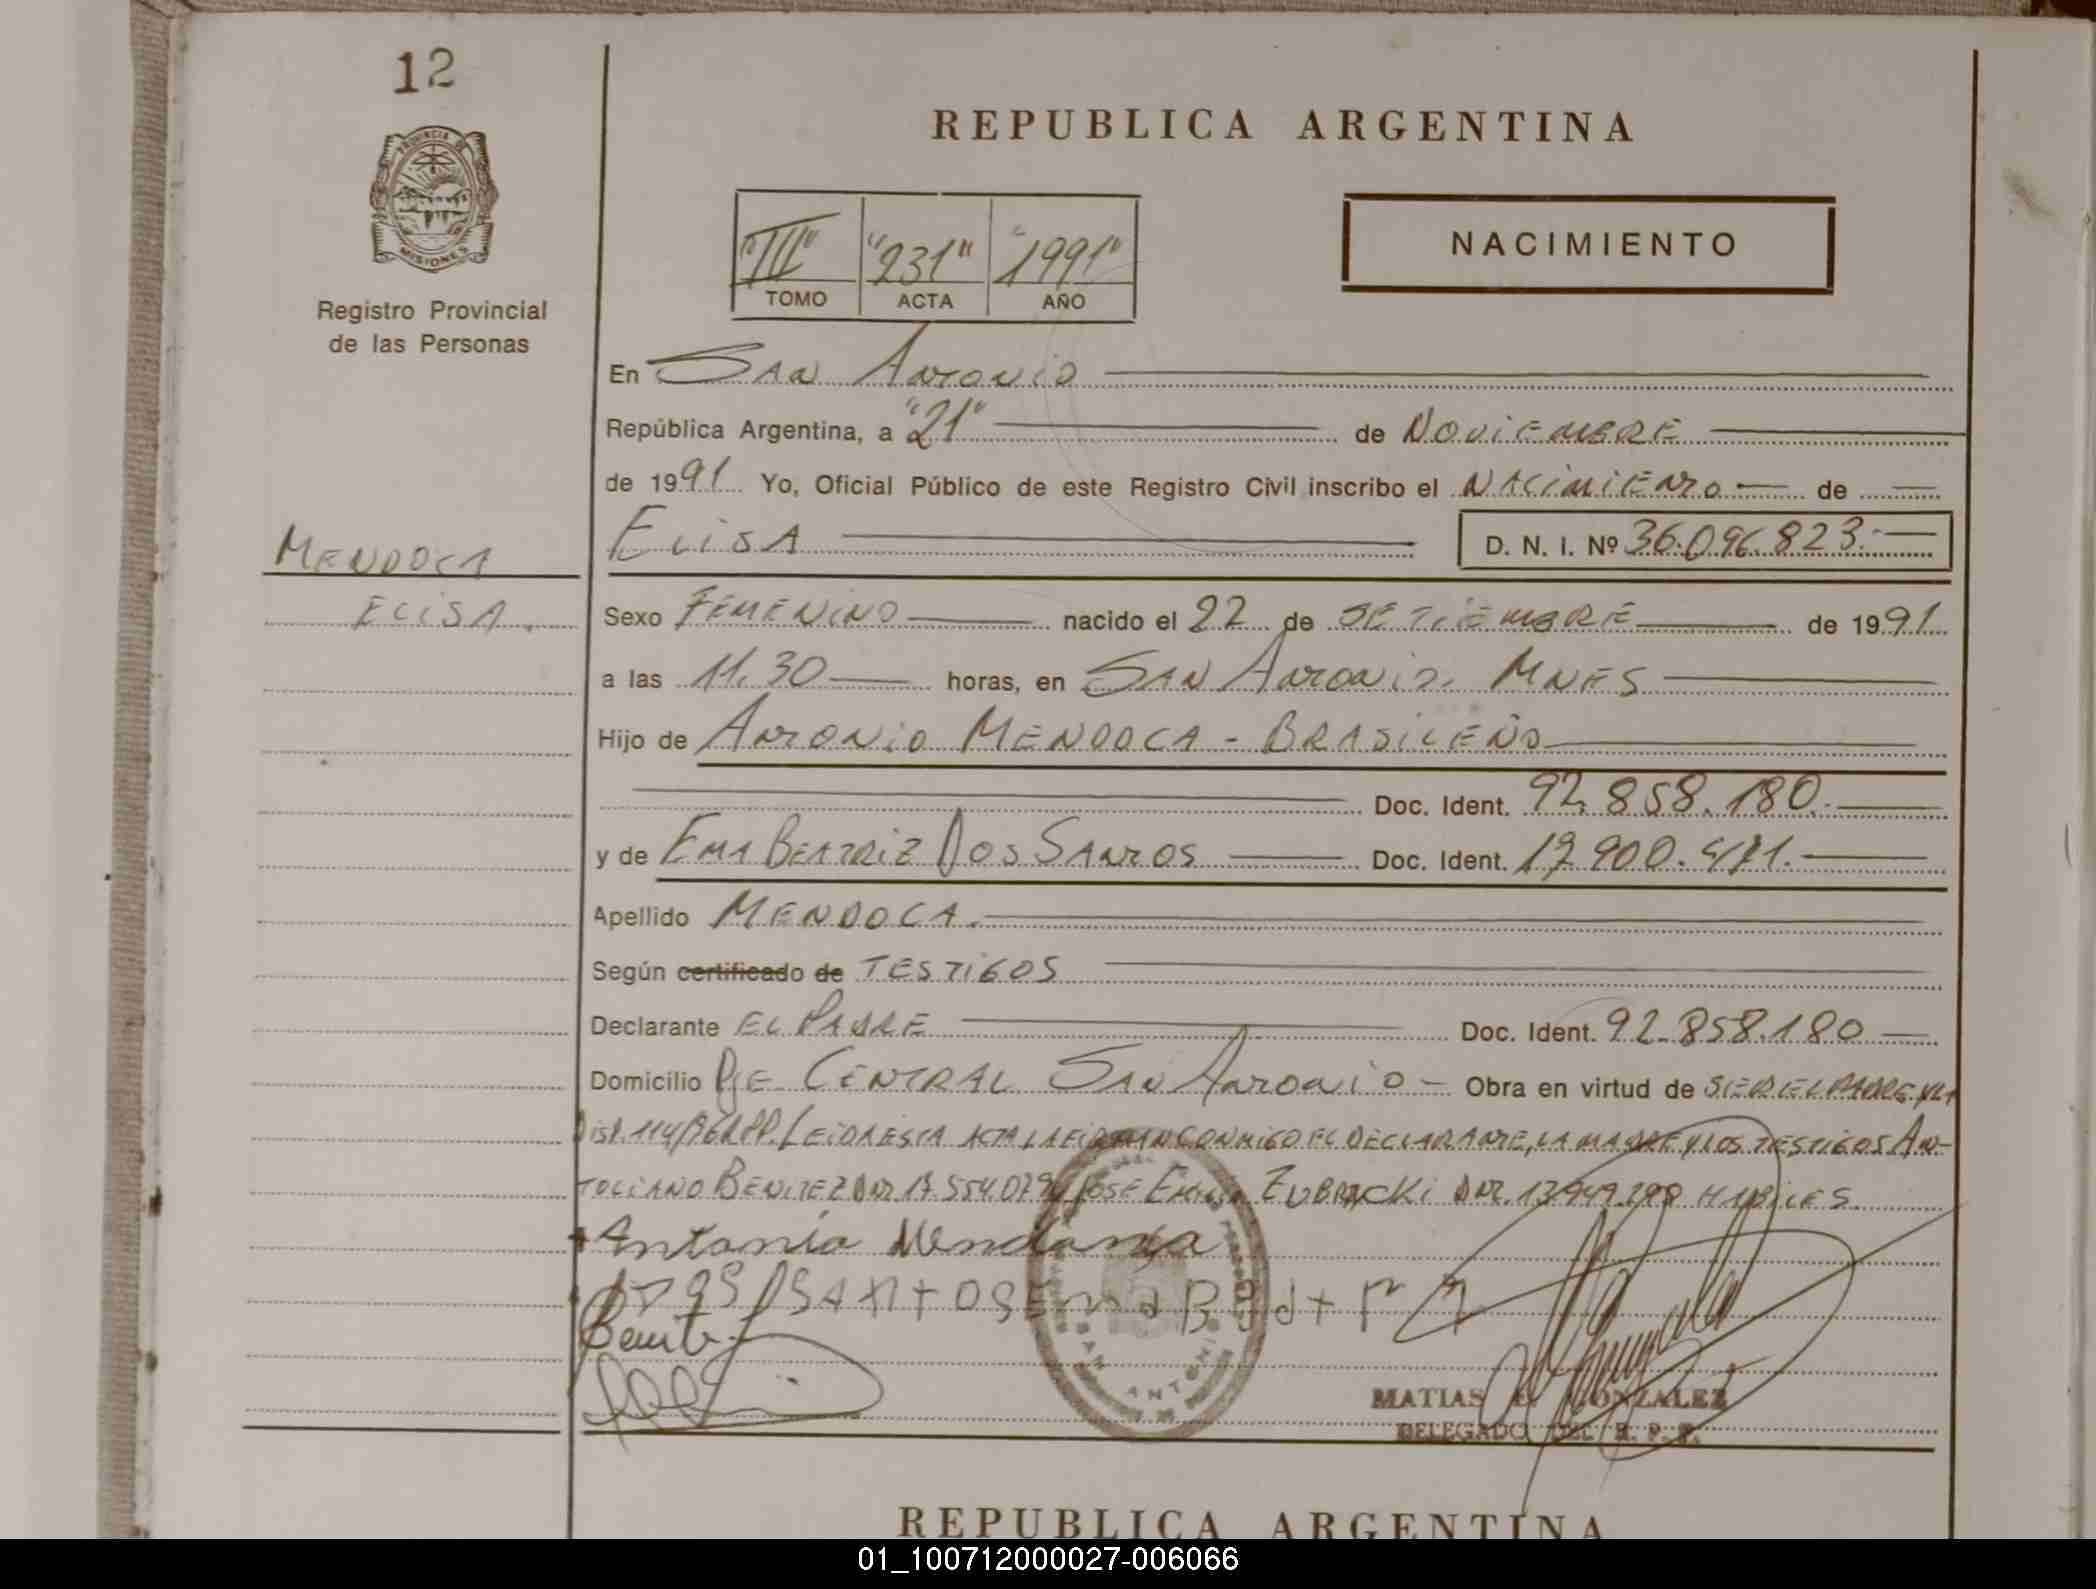 12
REPUBLICA ARGENTINA
PROVINCIA DE
MISIONES
Registro Provincial
de las Personas
NACIMIENTO
"III" "231" "1991"
TOMO ACTA AÑO
En SAN ANTONIO
República Argentina, a "21" de NOVIEMBRE
de 1991 Yo, Oficial Público de este Registro Civil inscribo el NACIMIENTO de
ELISA D. N. I. Nº 36.096.823.-
MENDOCA
ELISA.
Sexo FEMENINO nacido el 22 de SETIEMBRE de 1991
a las 11.30 horas, en SAN ANTONIO. MNES
Hijo de ANTONIO MENDOCA - BRASILEÑO
Doc. Ident. 92.858.180.-
y de EMA BEATRIZ DOS SANTOS Doc. Ident.
Apellido MENDOCA.
Según certificado de TESTIGOS
Declarante EL PADRE Doc. Ident. 92.858.180
Domicilio PJE CENTRAL SAN ANTONIO - Obra en virtud de SER EL PADRE Y LA
LEIDA ESTA ACTA LA FIRMAN CONMIGO EL DECLARANTE, LA MADRE Y LOS TESTIGOS AN-
TOLIANO BENITEZ DNI JOSE ZUBRYCKI DNI HABILES.
Antonio Mendonça
SANTOS EMA
Benitez
SAN ANTONIO
MATIAS GONZALEZ
DELEGADO DEL R. P. P.
REPUBLICA ARGENTINA
01_100712000027-006066